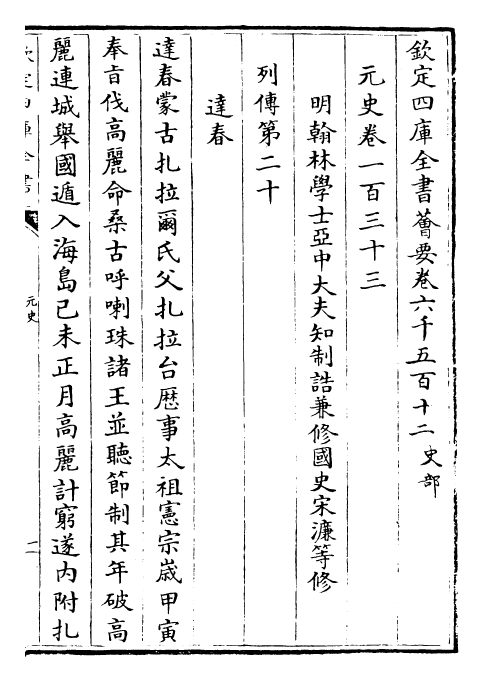 欽定四庫全書薈要卷六千五百十二 史部
元史卷一百三十三
明翰林學士亞中大夫知制誥兼修國史宋濂等修
列傳第二十
達春
達春蒙古扎拉爾氏父扎拉台歷事太祖憲宗歲甲寅
奉旨伐高麗命桑古呼喇珠諸王並聽節制其年破高
麗連城舉國遁入海島己未正月高麗計窮遂內附扎
欽定四庫全書
元史
一